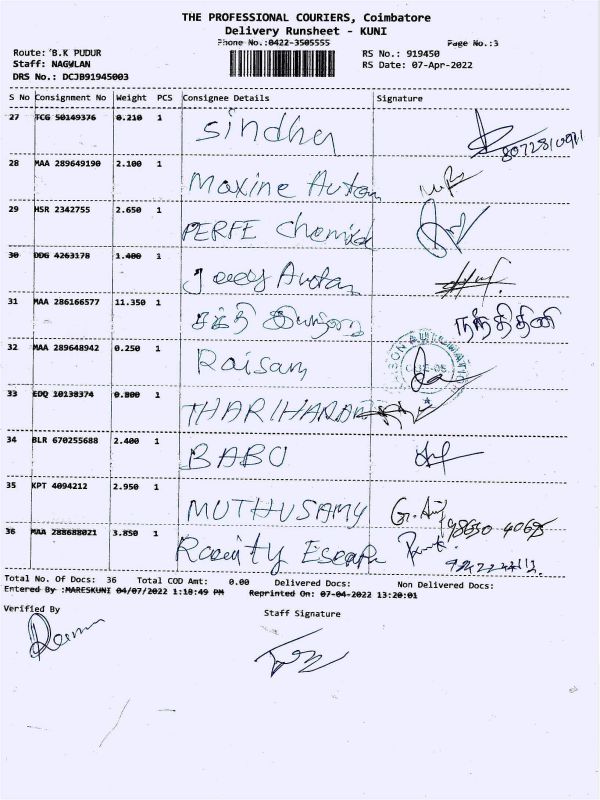 THE PROFESSIONAL COURIERS, Coimbatore
Delivery Runsheet - KUNI
Phone No.:0422-3505555 Page No.:3
Route: B.K PUDUR RS No.: 919450
Staff: NAGULAN RS Date: 07-Apr-2022
DRS No.: DCJB91945003
S No Consignment No Weight PCS Consignee Details Signature
27 TCG 50149376 0.210 1 Sindhu 8072810911
28 MAA 289649190 2.100 1 Maxine Autom
29 HSR 2342755 2.650 1 PERFE Chemicl
30 DDG 4263178 1.400 1
31 MAA 286166577 11.350 1 சக்தி நந்தினி
32 MAA 289648942 0.250 1 Raisam
33 EDQ 10138374 0.800 1 THARIHARAN
34 BLR 670255688 2.400 1 BABU
35 KPT 4094212 2.950 1 MUTHUSAMY
36 MAA 288688021 3.850 1
Total No. Of Docs: 36 Total COD Amt: 0.00 Delivered Docs: Non Delivered Docs:
Entered By :MARESKUNI 04/07/2022 1:18:49 PM Reprinted On: 07-04-2022 13:20:01
Verified By Staff Signature